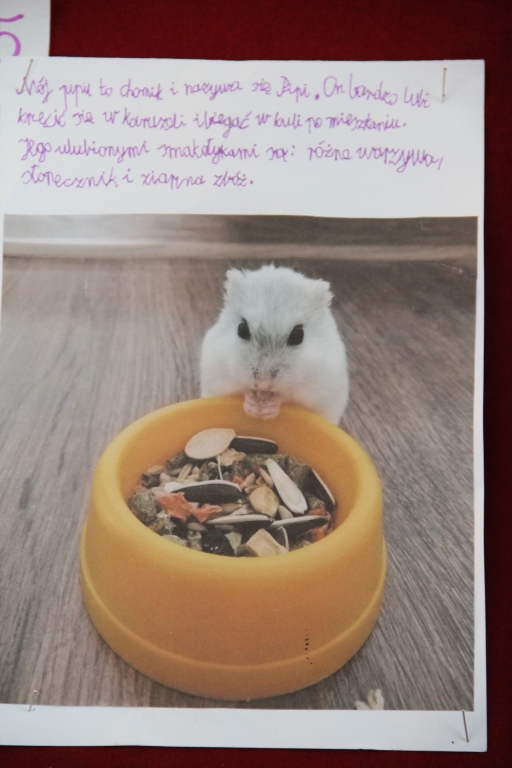 Mój pupil to chomik i nazywa się Pipi. On bardzo lubi
kręcić się w karuzeli i biegać w kuli po mieszkaniu.
Jego ulubionymi smakołykami są: różne warzywa,
słonecznik i ziarna zbóż.